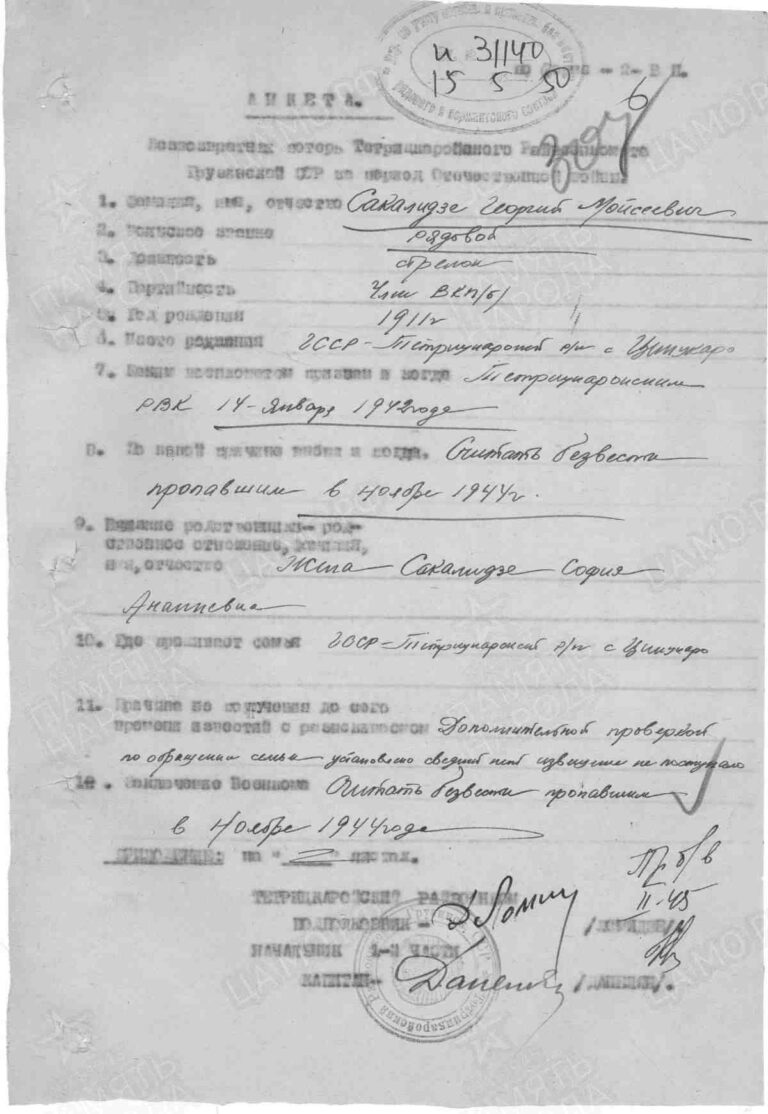 и 31140
15 5 50
6
АНКЕТА.
Безвозвратных потерь Тетрицкаройского Райвоенкомата
Грузинской ССР за период Отечественной войны.
1. Фамилия, имя, отчество Сакалидзе Георгий Мойсеевич
2. Воинское звание рядовой
3. Должность стрелок
4. Партийность Член ВКП/б/
5. Год рождения 1911г
6. Место рождения ГССР-Тетрицкаройский р/н с Цинцкаро
7. Каким военкоматом призван и когда Тетрицкаройским
РВК 14-Января 1942 годе
8. По какой причине выбыл и когда. Считать безвести
пропавшим в ноябре 1944г.
9. Ближайшие родственники- род-
ственное отношение, фамилия,
имя, отчество Жена Сакалидзе София
10. Где проживает семья ГССР-Тетрицкаройский р/н с Цинцкаро
11. Причина не получения до сего
времени известий с разыскиваемом Дополнительной проверкой
по обращении семьи установлено сведений нет извещение не поступало
12. Заключение Военкома Считать безвести пропавшим
в Ноябре 1944 годе
ПРИЛОЖЕНИЕ: на "2" листах.
Пр. б/в
II-45
ТЕТРИЦКАРОЙСКИЙ РАЙВОЕНКОМ
ПОДПОЛКОВНИК-
НАЧАЛЬНИК 1-й ЧАСТИ
КАПИТАН- /ДАНЕЛЯН/.